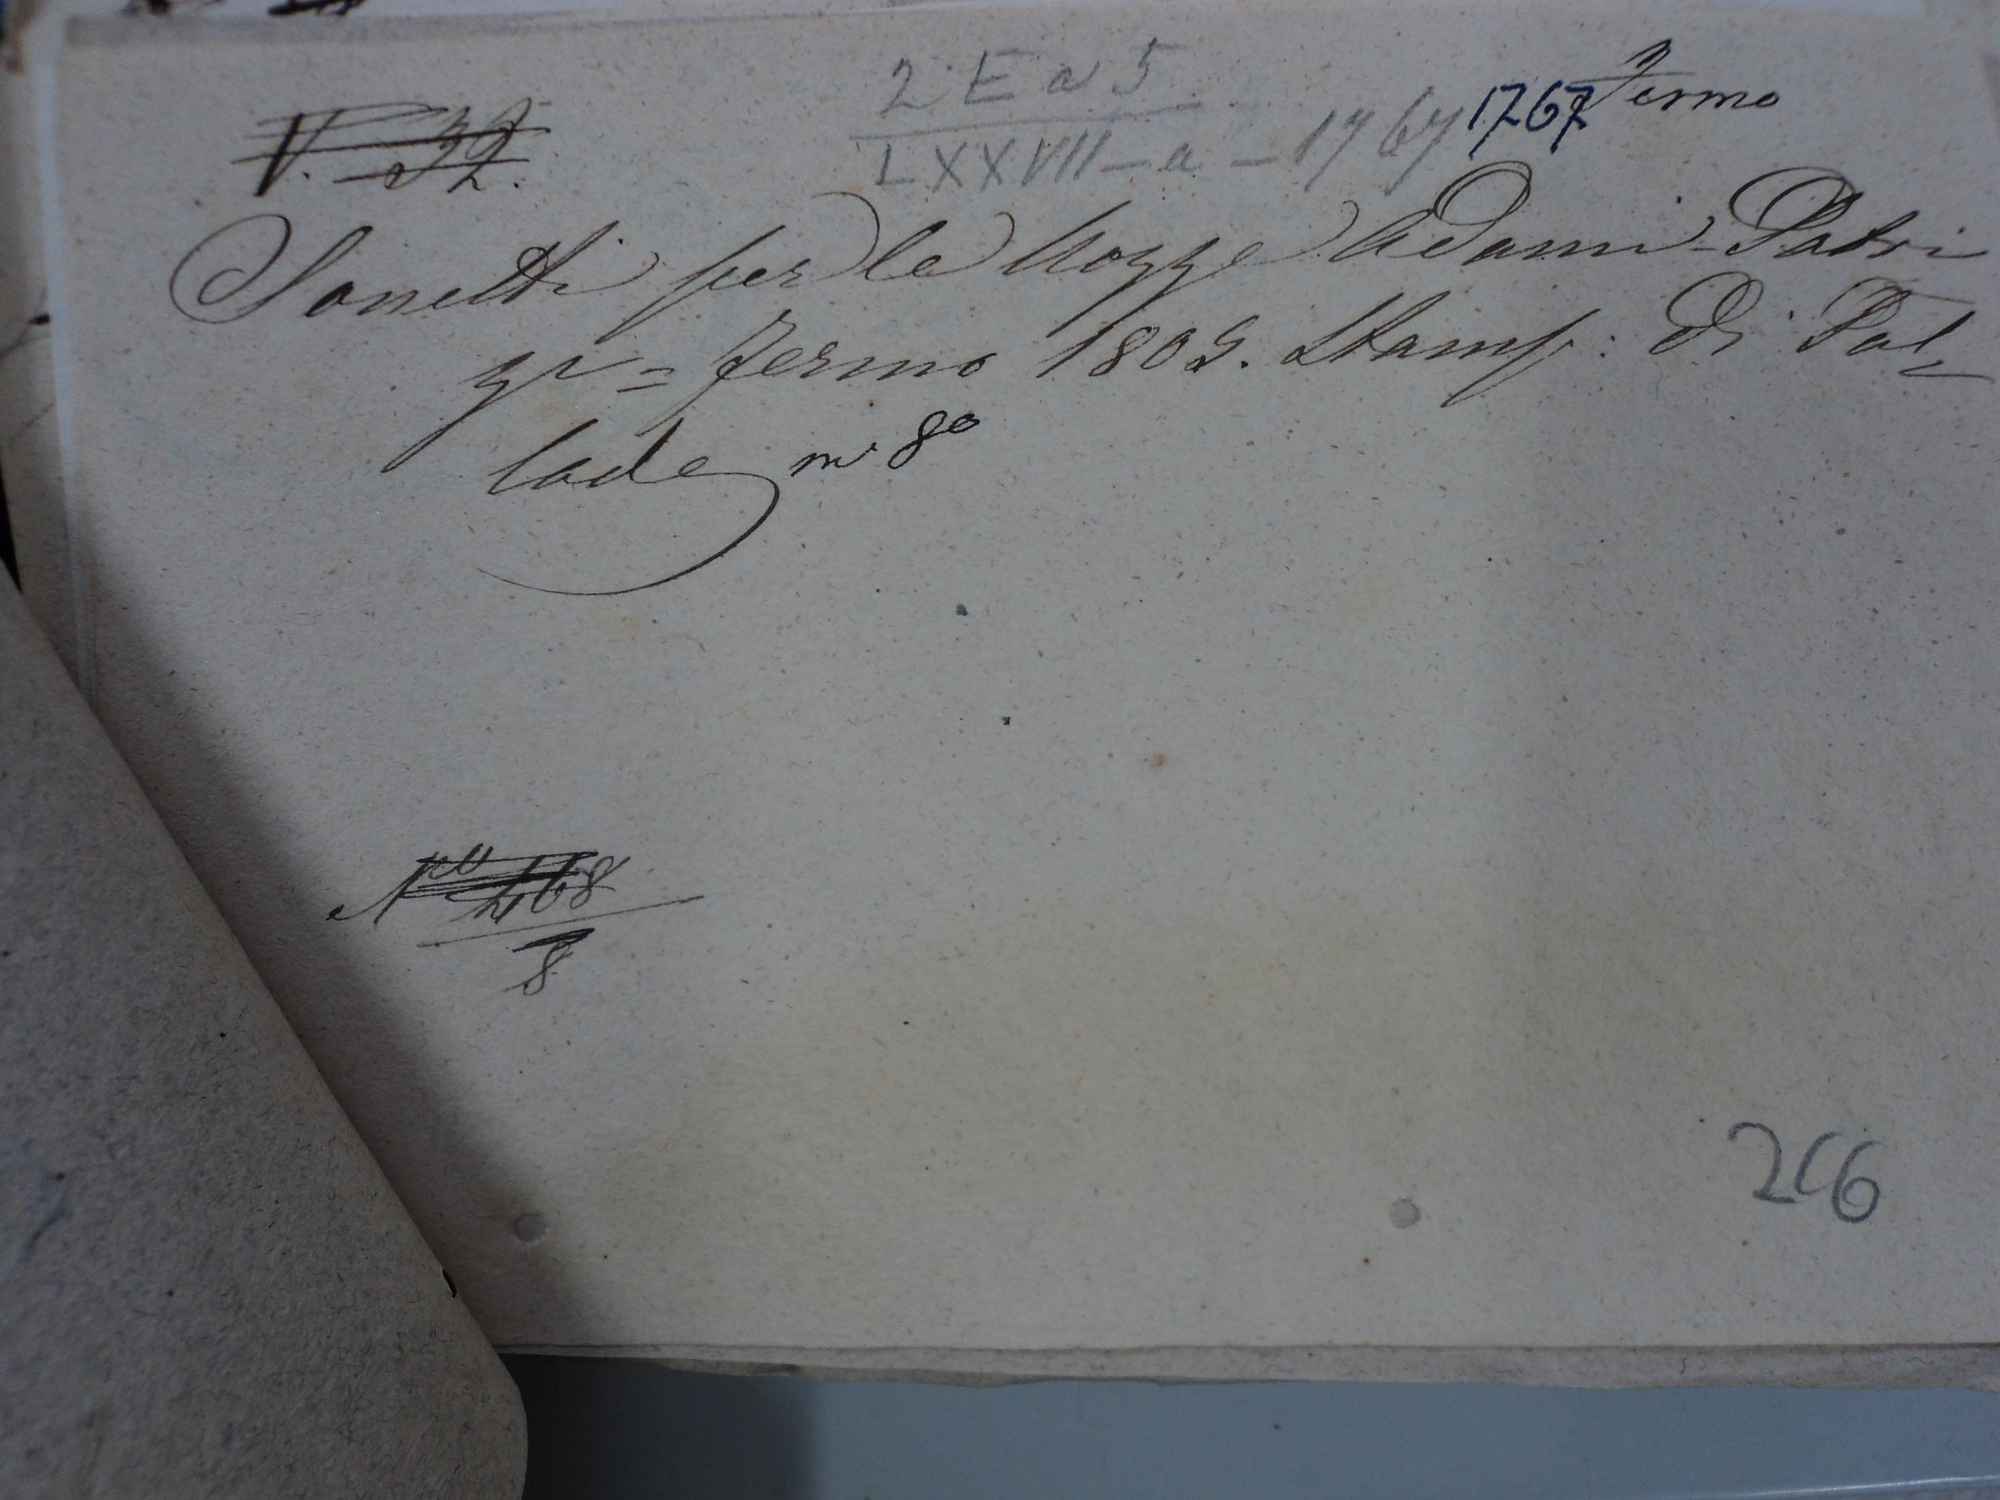 2 E a 5
LXXVII - a - 1767 1767 Fermo
V. 32.
Sonetti per le Nozze Adami-Patri
zi = Fermo 1809. Stamp: di Pal=
lade in 8º
Nº 468
8
266